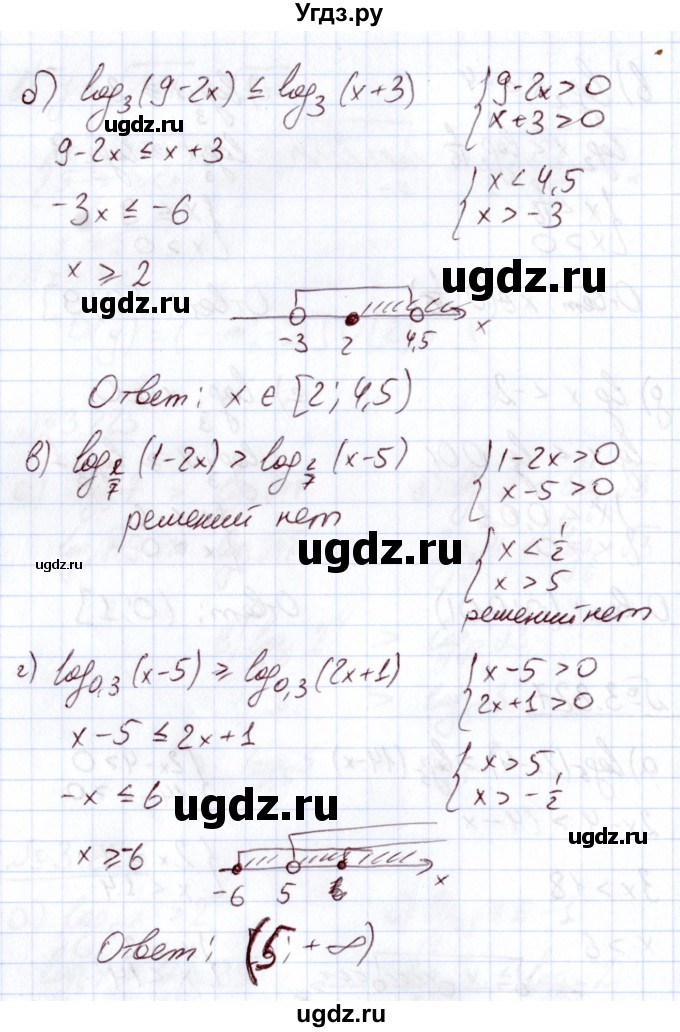 Угдз.ру
б) log₃(9-2x) ≤ log₃(x+3) { 9-2x>0
x+3>0
ugdz.ru
9-2x ≤ x+3
-3x ≤ -6 { x < 4,5
x > -3
x ≥ 2
ugdz.ru
ugdz.ru
-3 2 4,5 x
Ответ: x ∈ [2; 4,5)
в) log_2/7 (1-2x) > log_2/7 (x-5) { 1-2x>0
x-5>0
решений нет
ugdz.ru
ugdz.ru
{ x < 1/2
x > 5
решений нет
г) log₀,₃(x-5) ≥ log₀,₃(2x+1) { x-5>0
2x+1>0
x-5 ≤ 2x+1
-x ≤ 6 { x > 5
x > -1/2
ugdz.ru
ugdz.ru
x ≥ -6
-6 5 x
Ответ: (5; +∞)
ugdz.ru